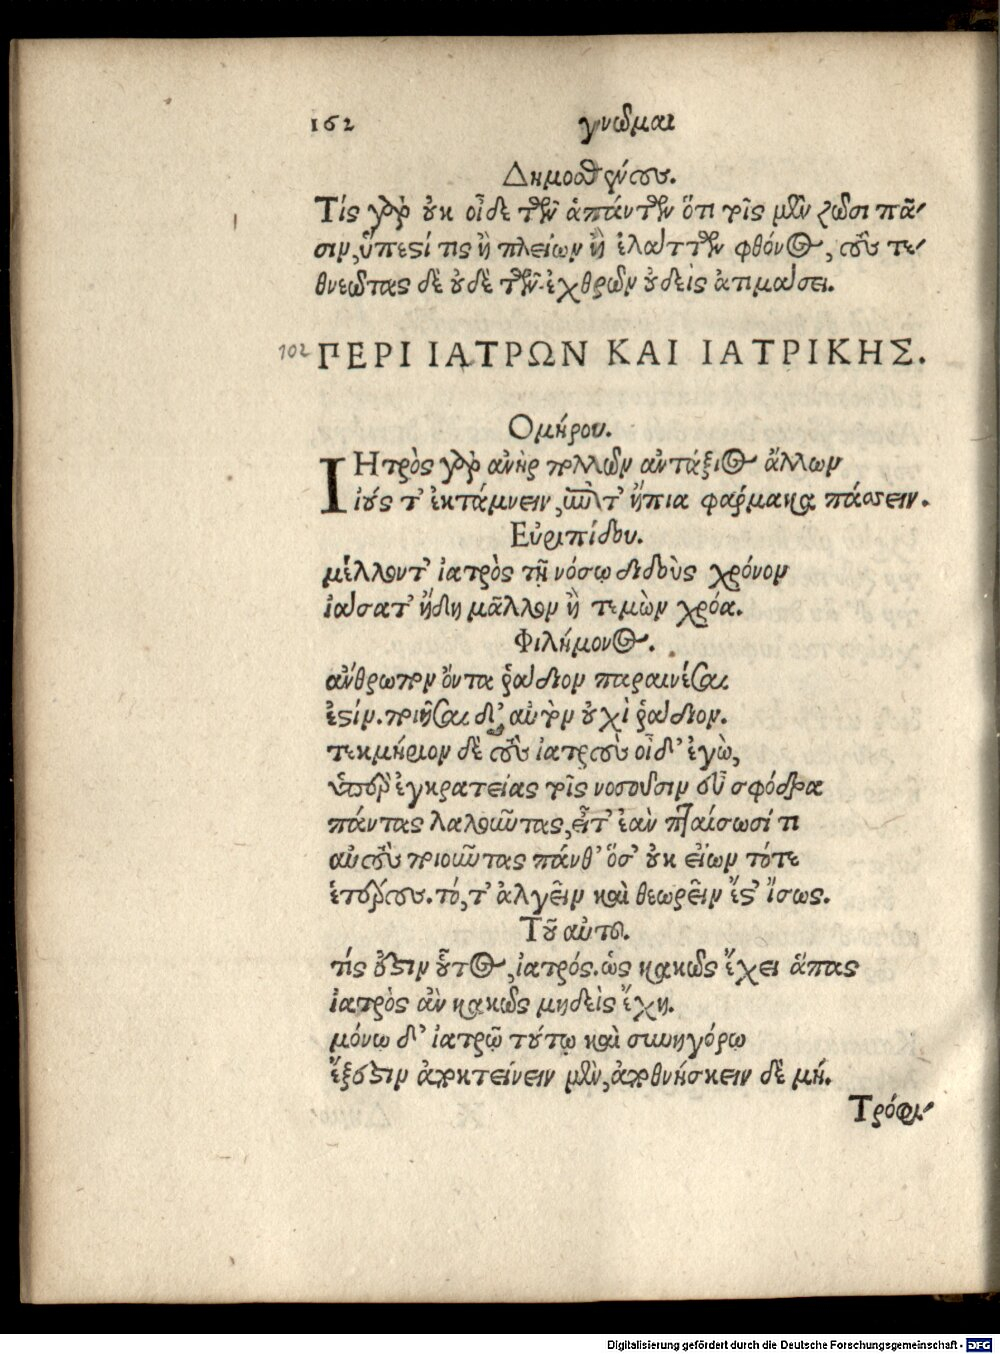 162 γνωμαι
Δημοσθένους.
Τίς γὰρ οὐκ οἶδε τῶν ἁπάντων ὅτι τοῖς μὲν ζῶσι πᾶ-
σιν, ὕπεστί τις ἢ πλείων ἢ ἐλάττων φθόνος, τοὺς τε-
θνεῶτας δὲ οὐδὲ τῶν ἐχθρῶν οὐδεὶς ἀτιμάσει.
102 ΠΕΡΙ ΙΑΤΡΩΝ ΚΑΙ ΙΑΤΡΙΚΗΣ.
Ομήρου.
ΙΗτρὸς γὰρ ἀνὴρ πολλῶν ἀντάξιος ἄλλων
ἰούς τ' ἐκτάμνειν, ἐπί τ' ἤπια φάρμακα πάσσειν.
Εὐριπίδου.
μέλλοντ' ἰατρὸς τῇ νόσῳ διδοὺς χρόνον
ἰάσατ' ἤδη μᾶλλον ἢ τεμὼν χρόα.
Φιλήμονος.
ἄνθρωπον ὄντα ῥάδιον παραινέσαι
ἐστίν. ποιῆσαι δ' αὐτὸν οὐχὶ ῥάδιον.
τεκμήριον δὲ τοὺς ἰατροὺς οἶδ' ἐγὼ,
ὑπὲρ ἐγκρατείας τοῖς νοσοῦσιν εὖ σφόδρα
πάντας λαλοῦντας, εἶτ' ἐὰν πταίσωσί τι
αὐτοὺς ποιοῦντας πάνθ' ὅσ' οὐκ εἴων τότε
ἑτέρους. τό, τ' ἀλγεῖν καὶ θεωρεῖν ἔστ' ἴσως.
Τοῦ αὐτοῦ.
τίς ἐστιν οὗτος, ἰατρός. ὡς κακῶς ἔχει ἅπας
ἰατρὸς ἂν κακῶς μηδεὶς ἔχῃ.
μόνῳ δ' ἰατρῷ τούτῳ καὶ συνηγόρῳ
ἔξεστιν ἀποκτείνειν μὲν, ἀποθνήσκειν δὲ μή.
Τρόφι-
Digitalisierung gefördert durch die Deutsche Forschungsgemeinschaft - DFG